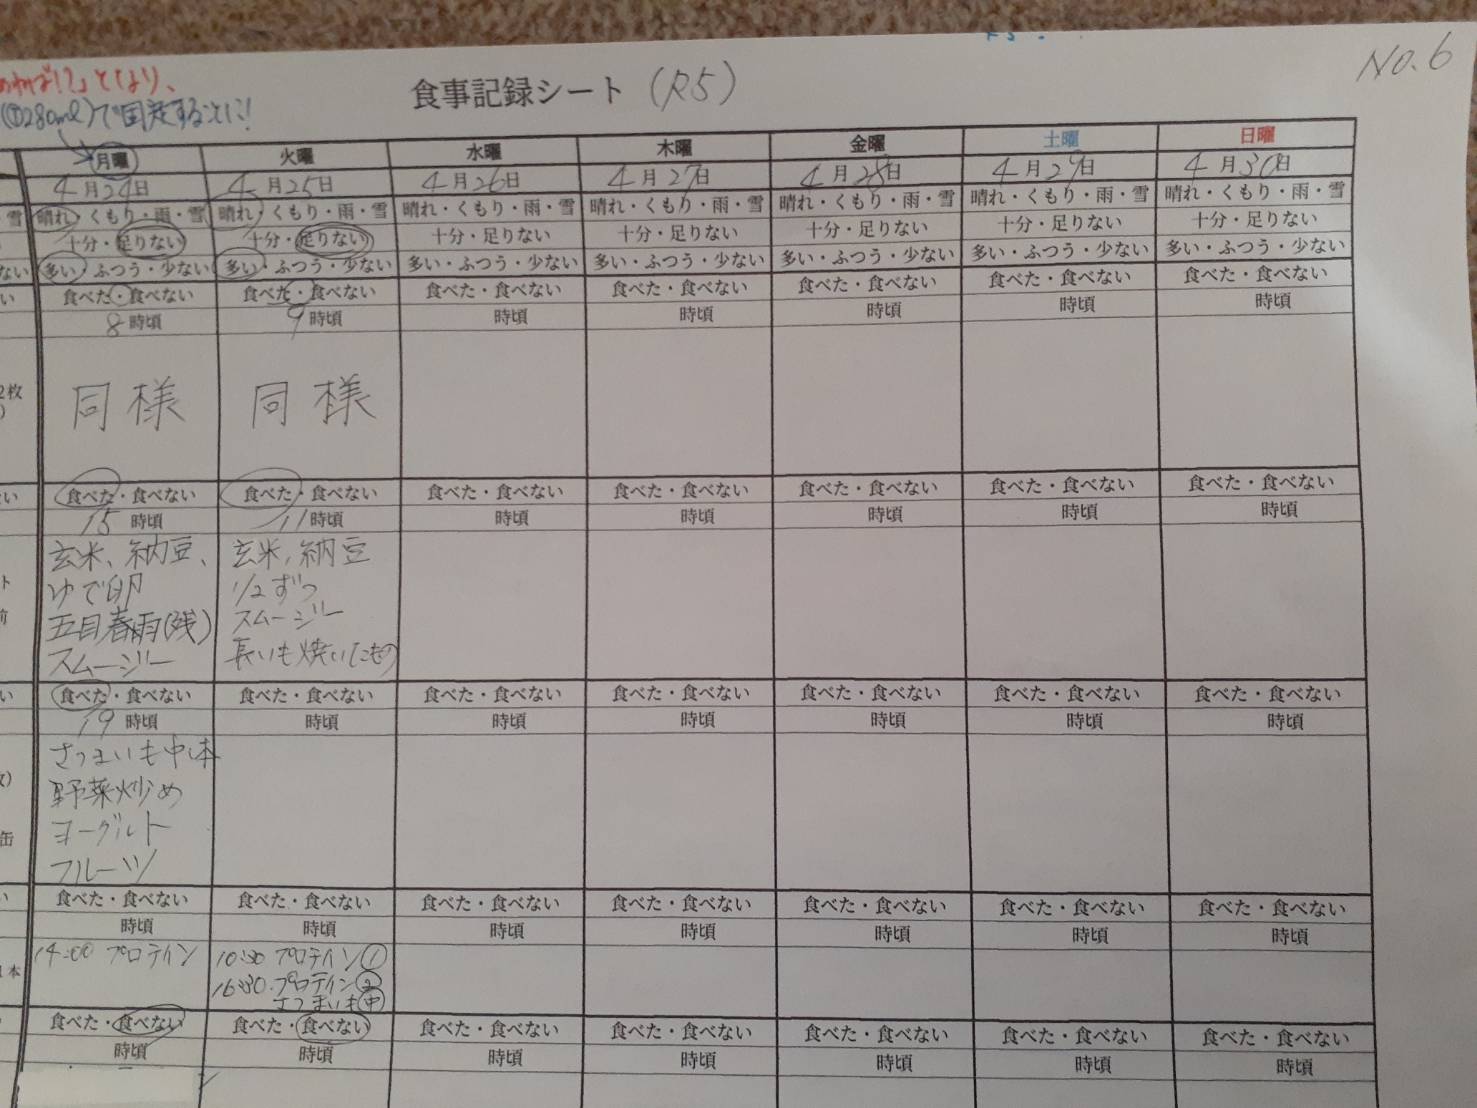 食事記録シート (R5)
No.6
(①280ml)で固定することに!
月曜 火曜 水曜 木曜 金曜 土曜 日曜
4月24日 4月25日 4月26日 4月27日 4月28日 4月29日 4月30日
雪 晴れ・くもり・雨・雪 晴れ・くもり・雨・雪 晴れ・くもり・雨・雪 晴れ・くもり・雨・雪 晴れ・くもり・雨・雪 晴れ・くもり・雨・雪 晴れ・くもり・雨・雪
十分・足りない 十分・足りない 十分・足りない 十分・足りない 十分・足りない 十分・足りない 十分・足りない
ない 多い・ふつう・少ない 多い・ふつう・少ない 多い・ふつう・少ない 多い・ふつう・少ない 多い・ふつう・少ない 多い・ふつう・少ない 多い・ふつう・少ない
い 食べた・食べない 食べた・食べない 食べた・食べない 食べた・食べない 食べた・食べない 食べた・食べない 食べた・食べない
8時頃 9時頃 時頃 時頃 時頃 時頃 時頃
2枚
)
同様 同様
い 食べた・食べない 食べた・食べない 食べた・食べない 食べた・食べない 食べた・食べない 食べた・食べない 食べた・食べない
15時頃 11時頃 時頃 時頃 時頃 時頃 時頃
玄米、納豆、 玄米,納豆
ト ゆで卵 1/2ずつ
前 五目春雨(残) スムージー
スムージー 長いも焼いたもの
い 食べた・食べない 食べた・食べない 食べた・食べない 食べた・食べない 食べた・食べない 食べた・食べない 食べた・食べない
19時頃 時頃 時頃 時頃 時頃 時頃 時頃
さつまいも中1本
野菜炒め
缶 ヨーグルト
フルーツ
い 食べた・食べない 食べた・食べない 食べた・食べない 食べた・食べない 食べた・食べない 食べた・食べない 食べた・食べない
時頃 時頃 時頃 時頃 時頃 時頃 時頃
14:00 プロテイン 10:30 プロテイン①
1本 16:30.プロテイン②
さつまいも㊥
食べた・食べない 食べた・食べない 食べた・食べない 食べた・食べない 食べた・食べない 食べた・食べない 食べた・食べない
時頃 時頃 時頃 時頃 時頃 時頃 時頃